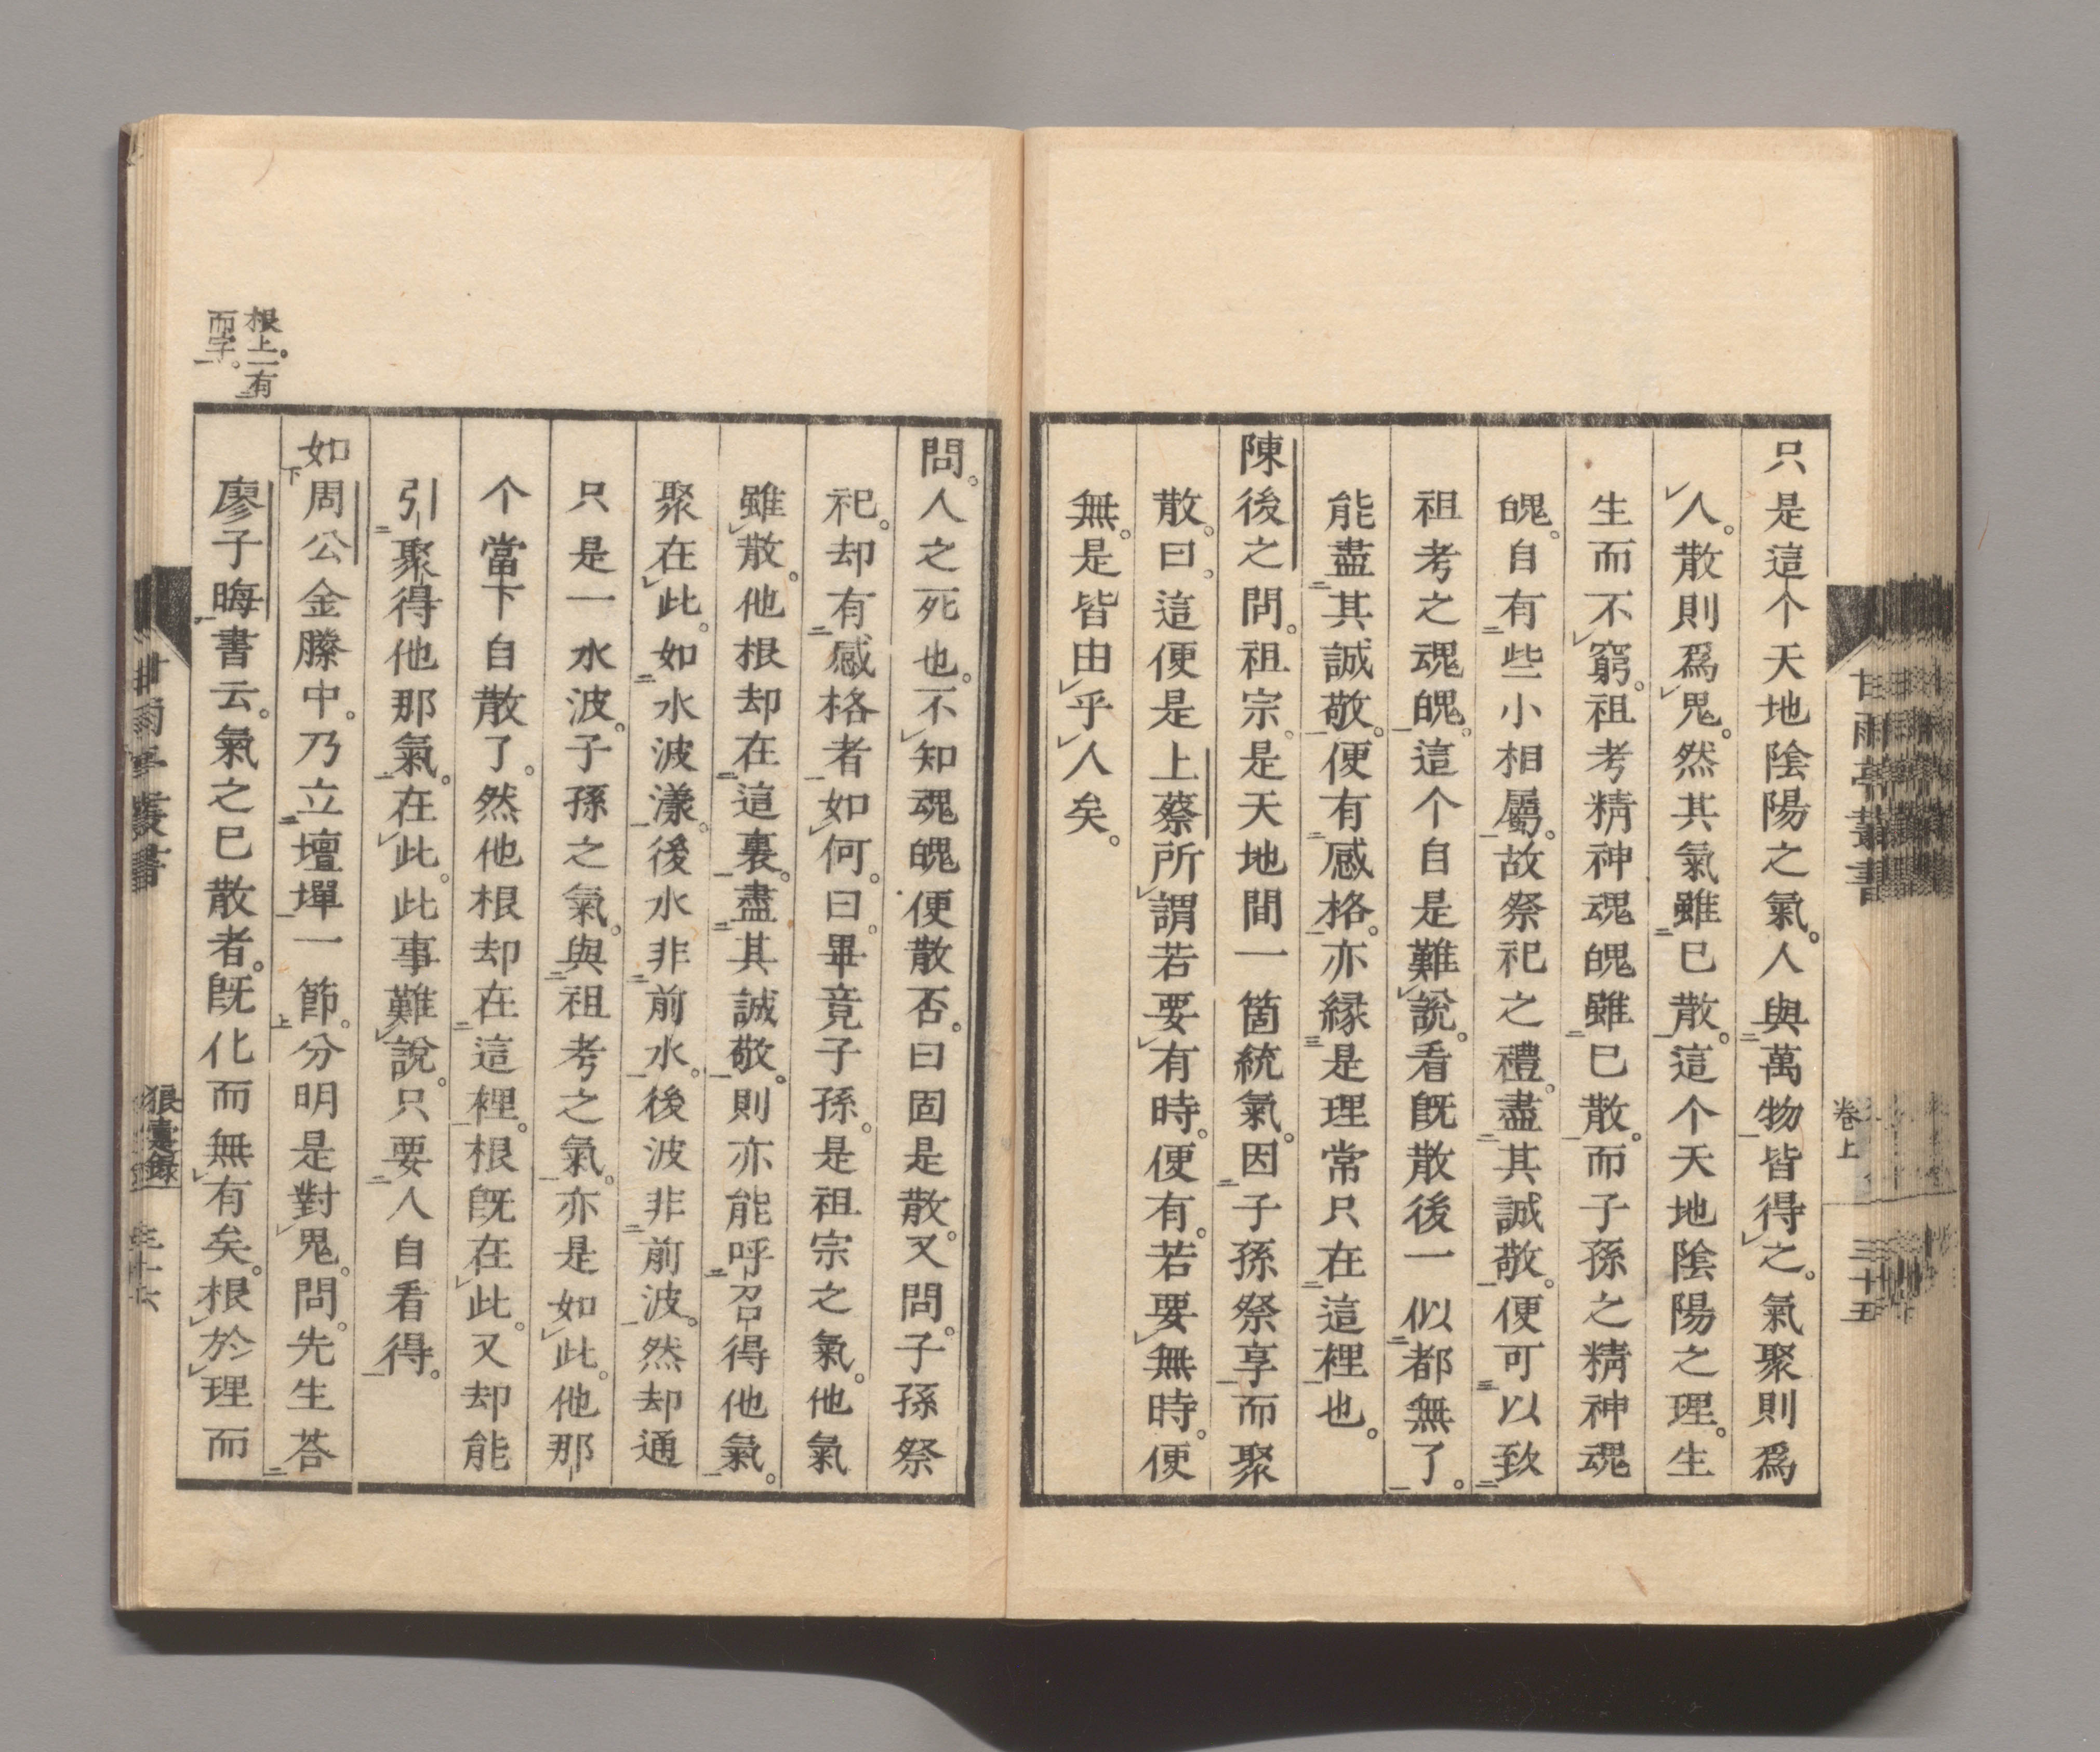 甘雨亭叢書
卷上
三十五
只是這个天地陰陽之氣。人與萬物皆得之。氣聚則爲
人。散則爲鬼。然其氣雖已散。這个天地陰陽之理。生
生而不窮。祖考精神魂魄雖已散。而子孫之精神魂
魄。自有些小相屬。故祭祀之禮。盡其誠敬。便可以致
祖考之魂魄。這个自是難說。看既散後一似都無了。
能盡其誠敬。便有感格。亦縁是理常只在這裡也。
陳後之問。祖宗。是天地間一箇統氣。因子孫祭享而聚
散。曰。這便是上蔡所謂若要有時。便有。若要無時。便
無。是皆由乎人矣。
問。人之死也。不知魂魄便散否。曰固是散。又問。子孫祭
祀。却有感格者如何。曰。畢竟子孫。是祖宗之氣。他氣
雖散。他根却在這裏。盡其誠敬。則亦能呼召得他氣。
聚在此。如水波漾。後水非前水。後波非前波。然却通
只是一水波。子孫之氣。與祖考之氣。亦是如此。他那
个當下自散了。然他根却在這裡。根既在此。又却能
引聚得他那氣。在此。此事難說。只要人自看得。
如周公金縢中。乃立壇墠一節。分明是對鬼。問。先生荅
廖子晦書云。氣之已散者。既化而無有矣。根於理而
根上。一有
而字。
甘雨亭叢書
狼疐錄
三十六